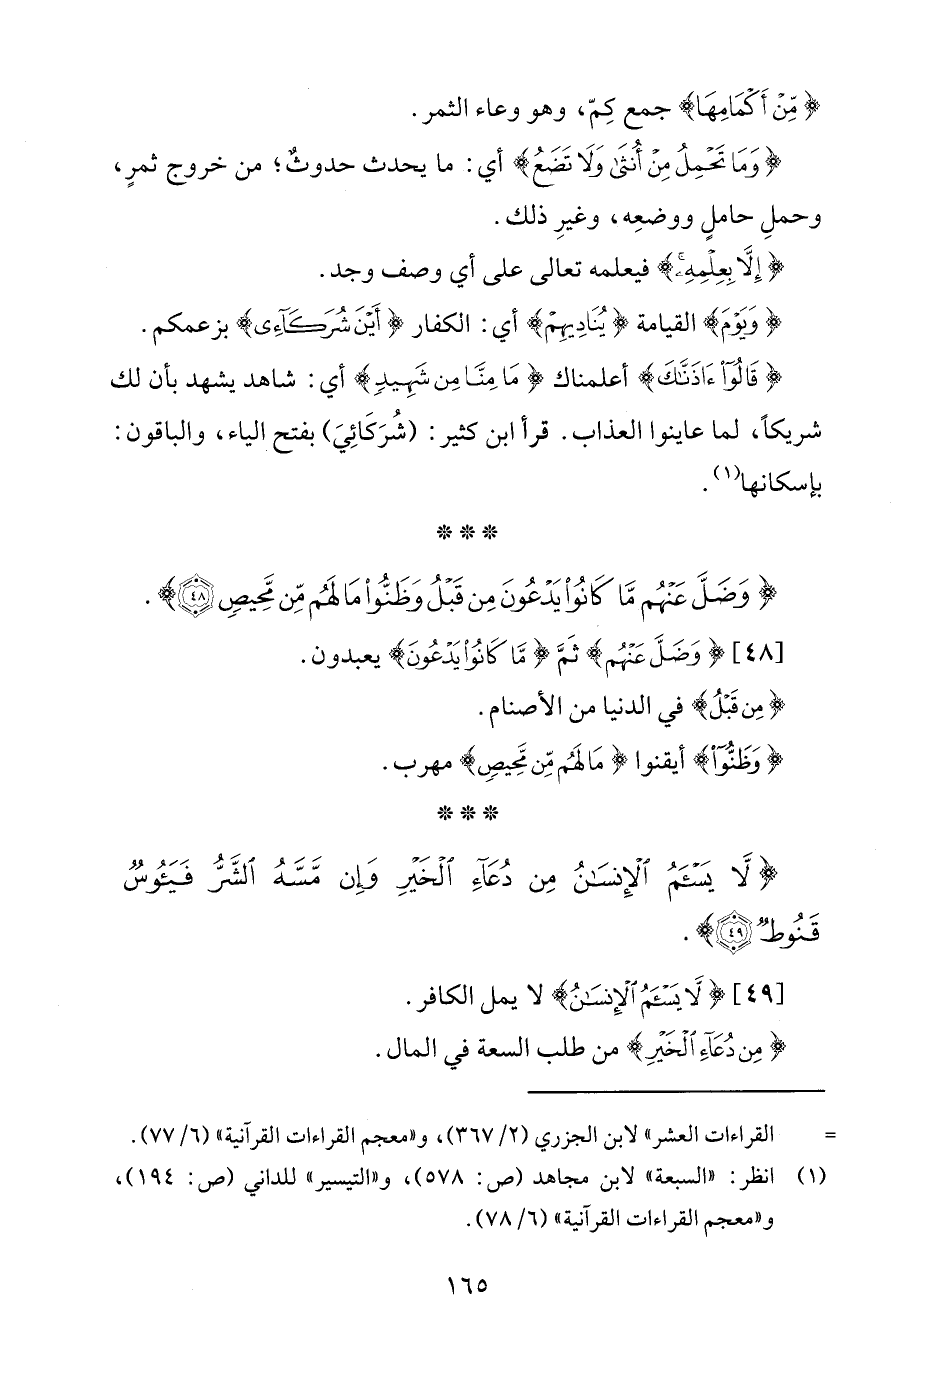 ﴿مِّنْ أَكْمَامِهَا﴾ جمع كِمّ، وهو وعاء الثمر.
﴿وَمَا تَحْمِلُ مِنْ أُنثَىٰ وَلَا تَضَعُ﴾ أي: ما يحدث حدوثٌ؛ من خروج ثمرٍ،
وحملِ حاملٍ ووضعِه، وغيرِ ذلك.
﴿إِلَّا بِعِلْمِهِۦ﴾ فيعلمه تعالى على أي وصف وجد.
﴿وَيَوْمَ﴾ القيامة ﴿يُنَادِيهِمْ﴾ أي: الكفار ﴿أَيْنَ شُرَكَآءِى﴾ بزعمكم.
﴿قَالُوٓا۟ ءَاذَنَّـٰكَ﴾ أعلمناك ﴿مَا مِنَّا مِن شَهِيدٍ﴾ أي: شاهد يشهد بأن لك
شريكاً، لما عاينوا العذاب. قرأ ابن كثير: (شُرَكَائِيَ) بفتح الياء، والباقون:
بإسكانها(١).
* * *
﴿وَضَلَّ عَنْهُم مَّا كَانُوا۟ يَدْعُونَ مِن قَبْلُ وَظَنُّوا۟ مَا لَهُم مِّن مَّحِيصٍ ٤٨﴾.
[٤٨] ﴿وَضَلَّ عَنْهُم﴾ ثَمَّ ﴿مَّا كَانُوا۟ يَدْعُونَ﴾ يعبدون.
﴿مِن قَبْلُ﴾ في الدنيا من الأصنام.
﴿وَظَنُّوٓا۟﴾ أيقنوا ﴿مَا لَهُم مِّن مَّحِيصٍ﴾ مهرب.
* * *
﴿لَّا يَسْـَٔمُ ٱلْإِنسَـٰنُ مِن دُعَآءِ ٱلْخَيْرِ وَإِن مَّسَّهُ ٱلشَّرُّ فَيَـُٔوسٌ
قَنُوطٌ ٤٩﴾.
[٤٩] ﴿لَّا يَسْـَٔمُ ٱلْإِنسَـٰنُ﴾ لا يمل الكافر.
﴿مِن دُعَآءِ ٱلْخَيْرِ﴾ من طلب السعة في المال.
= القراءات العشر» لابن الجزري (٢/ ٣٦٧)، و«معجم القراءات القرآنية» (٦/ ٧٧).
(١) انظر: «السبعة» لابن مجاهد (ص: ٥٧٨)، و«التيسير» للداني (ص: ١٩٤)،
و«معجم القراءات القرآنية» (٦/ ٧٨).
١٦٥